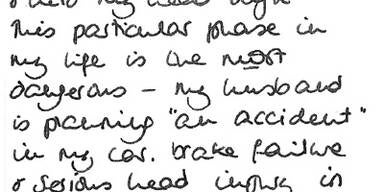 & held my head high
This particular phase in
my life is the most
dangerous – my husband
is planning "an accident"
in my car. brake failure
& serious head injury in